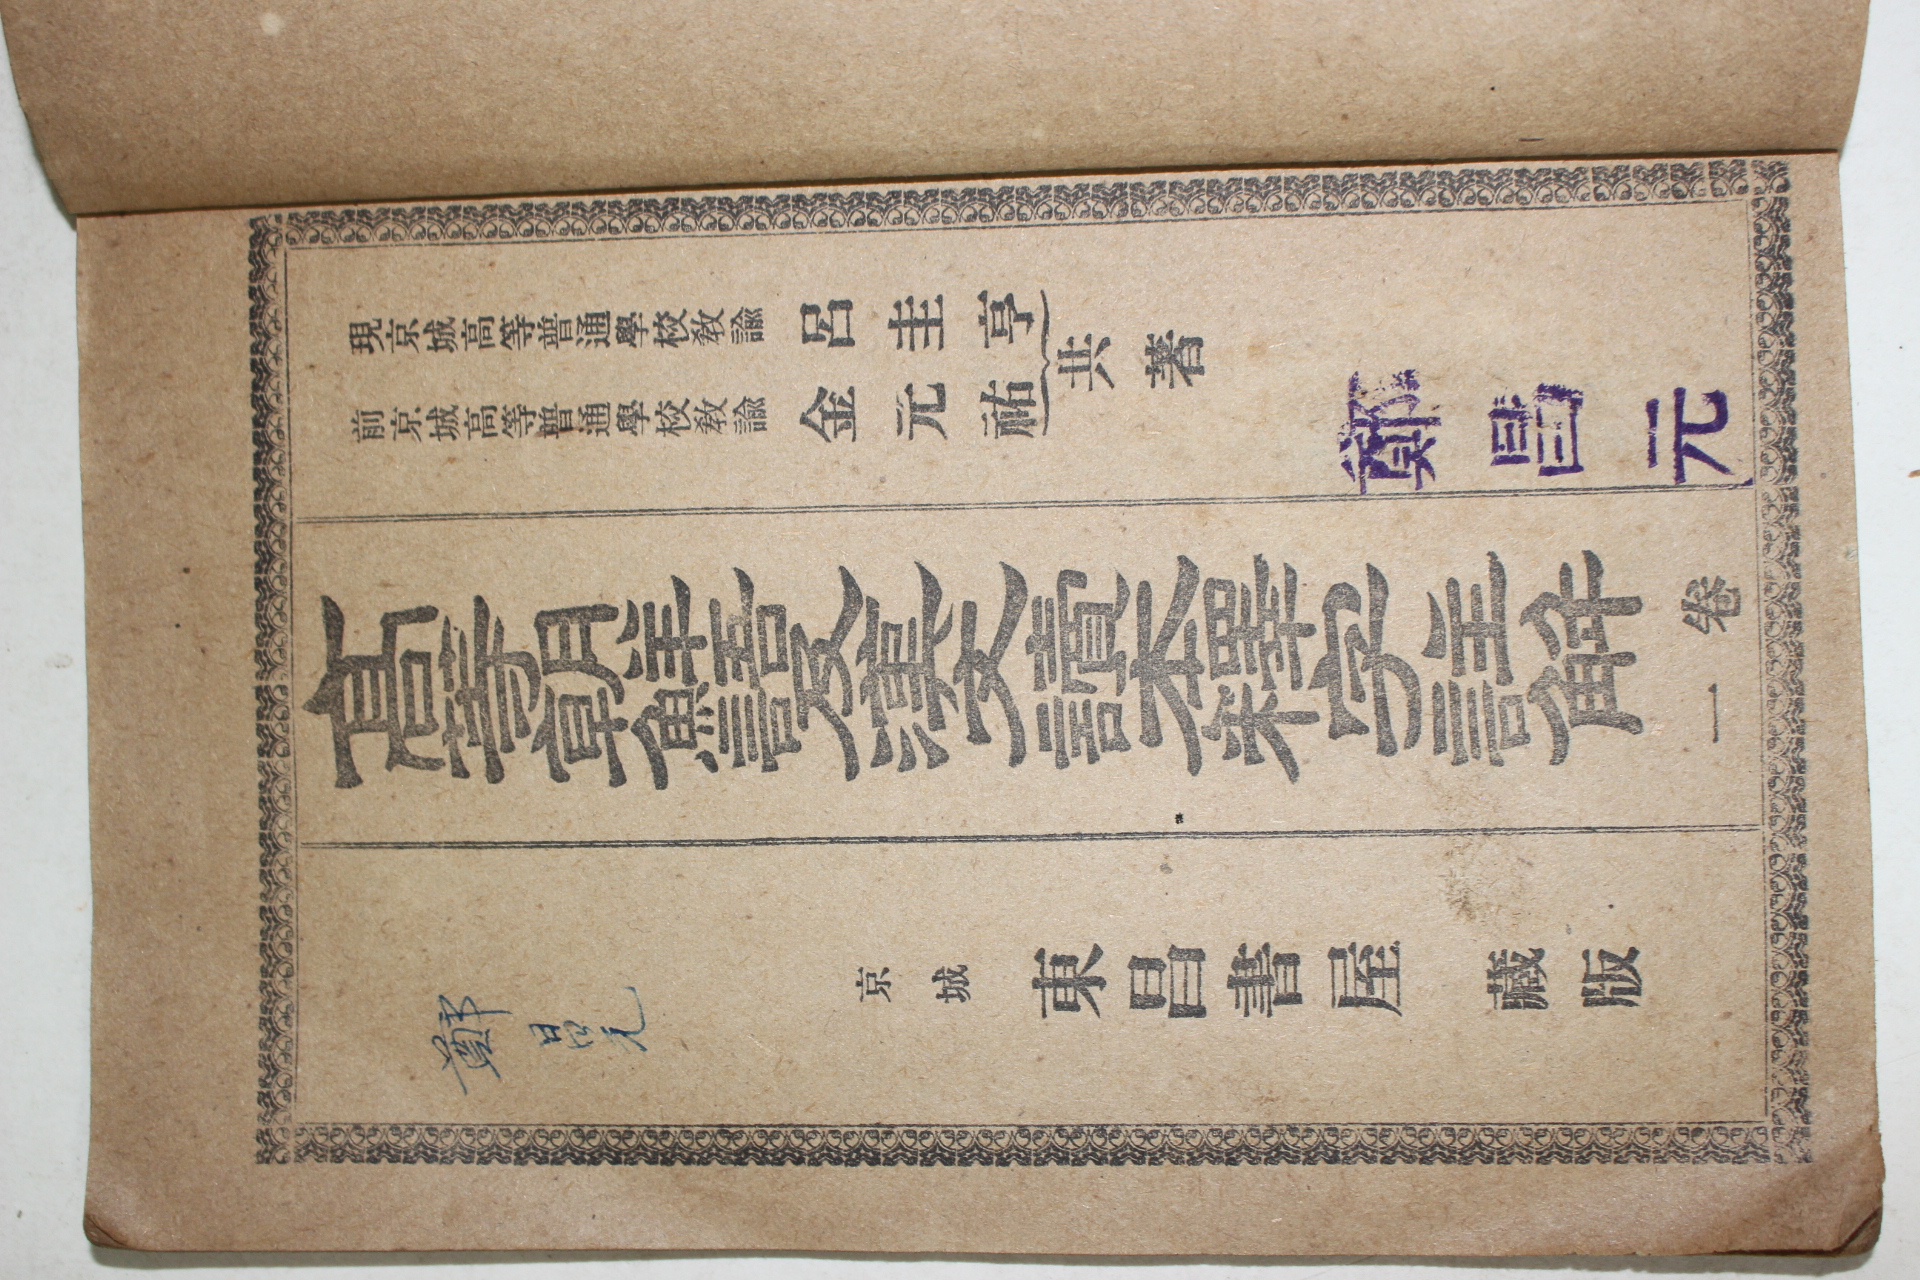 現京城高等普通學校敎諭 呂圭亨
前京城高等普通學校敎諭 金元祐
共著
鄭昌元
高等朝鮮語及漢文讀本釋字註解
卷一
京城 東昌書屋 藏版
鄭昌元